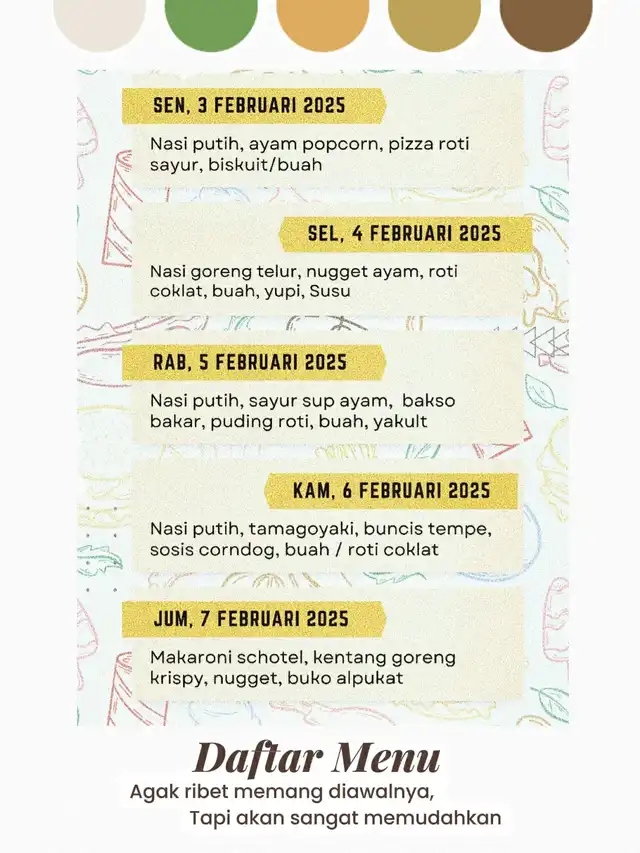 SEN, 3 FEBRUARI 2025
Nasi putih, ayam popcorn, pizza roti
sayur, biskuit/buah
SEL, 4 FEBRUARI 2025
Nasi goreng telur, nugget ayam, roti
coklat, buah, yupi, Susu
RAB, 5 FEBRUARI 2025
Nasi putih, sayur sup ayam, bakso
bakar, puding roti, buah, yakult
KAM, 6 FEBRUARI 2025
Nasi putih, tamagoyaki, buncis tempe,
sosis corndog, buah / roti coklat
JUM, 7 FEBRUARI 2025
Makaroni schotel, kentang goreng
krispy, nugget, buko alpukat
Daftar Menu
Agak ribet memang diawalnya,
Tapi akan sangat memudahkan